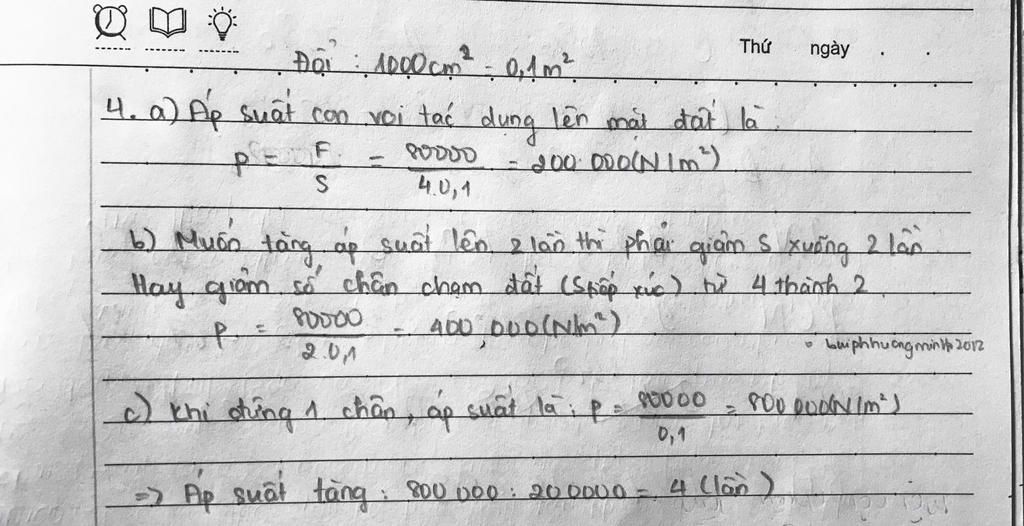 Thứ ngày . .
Đổi : 1000cm² = 0,1m²
4. a) Áp suất con voi tác dụng lên mặt đất là :
p = F/S = 80000/4.0,1 = 200 000(N/m²)
b) Muốn tăng áp suất lên 2 lần thì phải giảm S xuống 2 lần
Hay giảm số chân chạm đất (S tiếp xúc) từ 4 thành 2
p = 80000/2.0,1 = 400,000(N/m²)
buiphhuongminhh2012
c) Khi đứng 1 chân, áp suất là : p = 80000/0,1 = 800 000(N/m²)
=> Áp suất tăng : 800 000 : 200000 = 4 (lần)